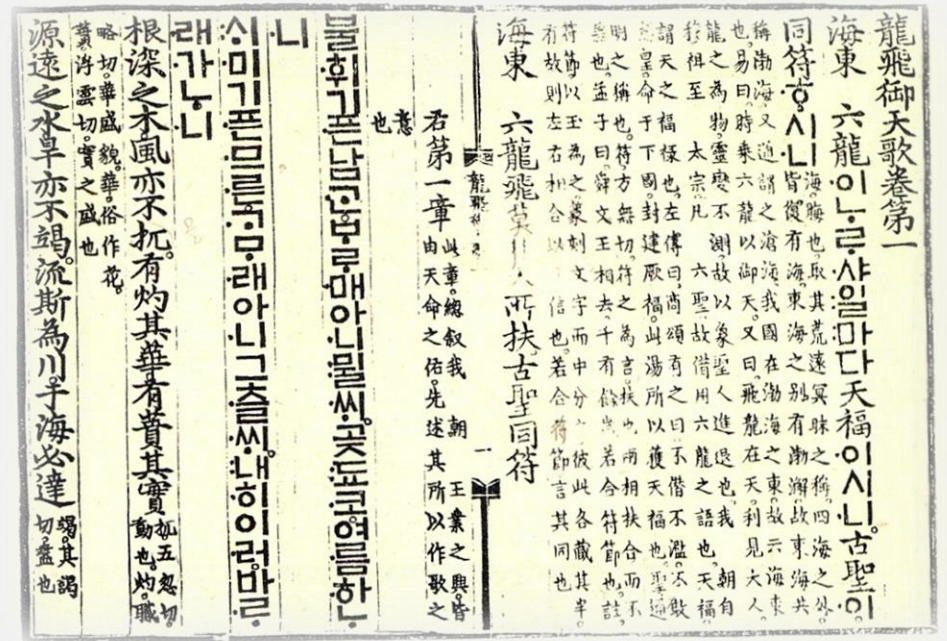 龍飛御天歌卷第一
海東 六龍이ᄂᆞᄅᆞ샤일마다天福이시니。古聖이
同符ᄒᆞ시니
海晦也。取其荒遠冥昧之稱。四海之外。
皆復有海。東海之別有渤澥。故東海共
稱渤海。又通謂之滄海。我國在渤海之東。故云海東
也。易曰。時乘六龍以御天。又曰飛龍在天。利見大人。
龍之為物。靈變不測。故以象聖人進退也。我 朝自
穆祖至 太宗凡 六聖。故借用六龍之語也。天福
謂天之福祿也。左傳曰。商頌有之曰。不僭不濫。不敢
怠皇。命于下國。封建厥福。此湯所以獲天福也。聖通
明之稱也。符。方無切。符之為言扶也。兩相扶合而不
差也。孟子曰。舜文王相去千有餘歲。若合符節也。註
符節以玉為之。篆刻文字而中分之。彼此各藏其半。
有故則左右相合以 信也。若合符節言其同也
海東 六龍飛莫 所扶。古聖同符
龍飛
一
右第一章
此章。總叙我 朝 王業之興。皆
由天命之佑。先述其所以作歌之
意也
불휘기픈남ᄀᆞᆫᄇᆞᄅᆞ매아니뮐ᄊᆡ。곶됴코여름하ᄂᆞ
니
ᄉᆡ미기픈므른ᄀᆞᄆᆞ래아니그츨ᄊᆡ。내히이러바ᄅᆞ
래가ᄂᆞ니
根深之木風亦不扤。有灼其華有蕡其實
扤五忽切
動也。灼。職
略切。華盛貌。華。俗作花。
蕡浮雲切。實之盛也
源遠之水旱亦不竭。流斯為川于海必達
竭。其謁
切。盡也